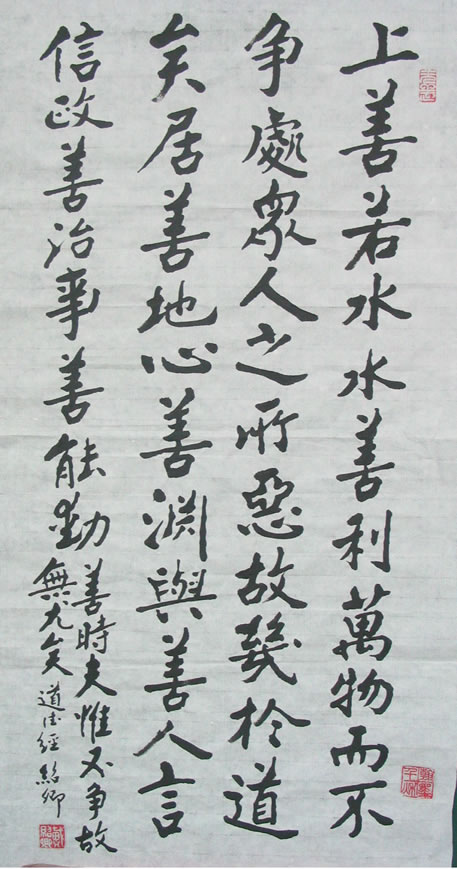 上善若水水善利萬物而不
争處眾人之所惡故幾於道
矣居善地心善淵與善人言
信政善治事善能動
善時夫惟不争故
無尤矣
道德經 紹卿